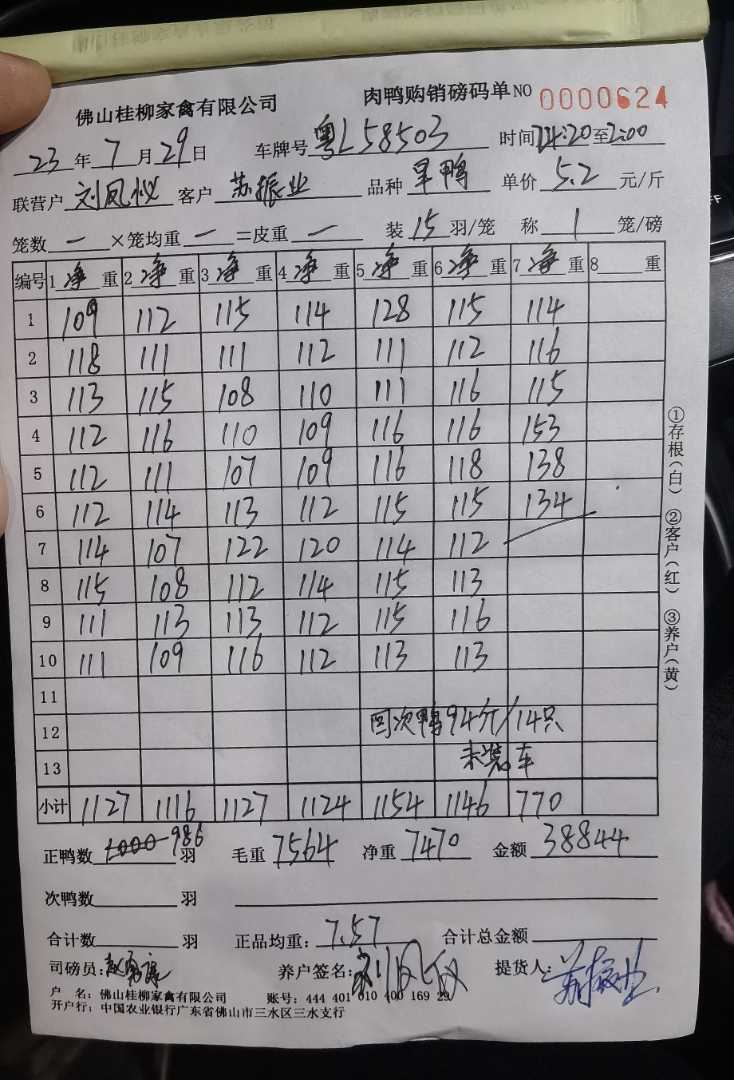 佛山桂柳家禽有限公司 肉鸭购销磅码单 NO 0000624
23年7月29日 车牌号 粤L58503 时间 至2:00
联营户 刘凤仪 客户 苏振业 品种 旱鸭 单价 5.2 元/斤
笼数 — ×笼均重 — =皮重 — 装 15 羽/笼 称 1 笼/磅
编号 1 净重 2 净重 3 净重 4 净重 5 净重 6 净重 7 净重 8 重
1 109 112 115 114 128 115 114
2 118 111 111 112 111 112 116
3 113 115 108 110 111 116 115
4 112 116 110 109 116 116 153
5 112 111 107 109 116 118 138
6 112 114 113 112 115 115 134
7 114 107 122 120 114 112
8 115 108 112 114 115 113
9 111 113 113 112 115 116
10 111 109 116 112 113 113
11
12 回次鸭94斤/14只
13 未装车
小计 1127 1116 1127 1124 1154 1146 770
正鸭数 1000 986 羽 毛重 7564 净重 7470 金额 38844
次鸭数 羽
合计数 羽 正品均重: 7.57 合计总金额
司磅员: 养户签名: 刘凤仪 提货人: 苏振业
户 名: 佛山桂柳家禽有限公司 账号: 444 401 010 400 169 29
开户行: 中国农业银行广东省佛山市三水区三水支行
①存根(白) ②客户(红) ③养户(黄)